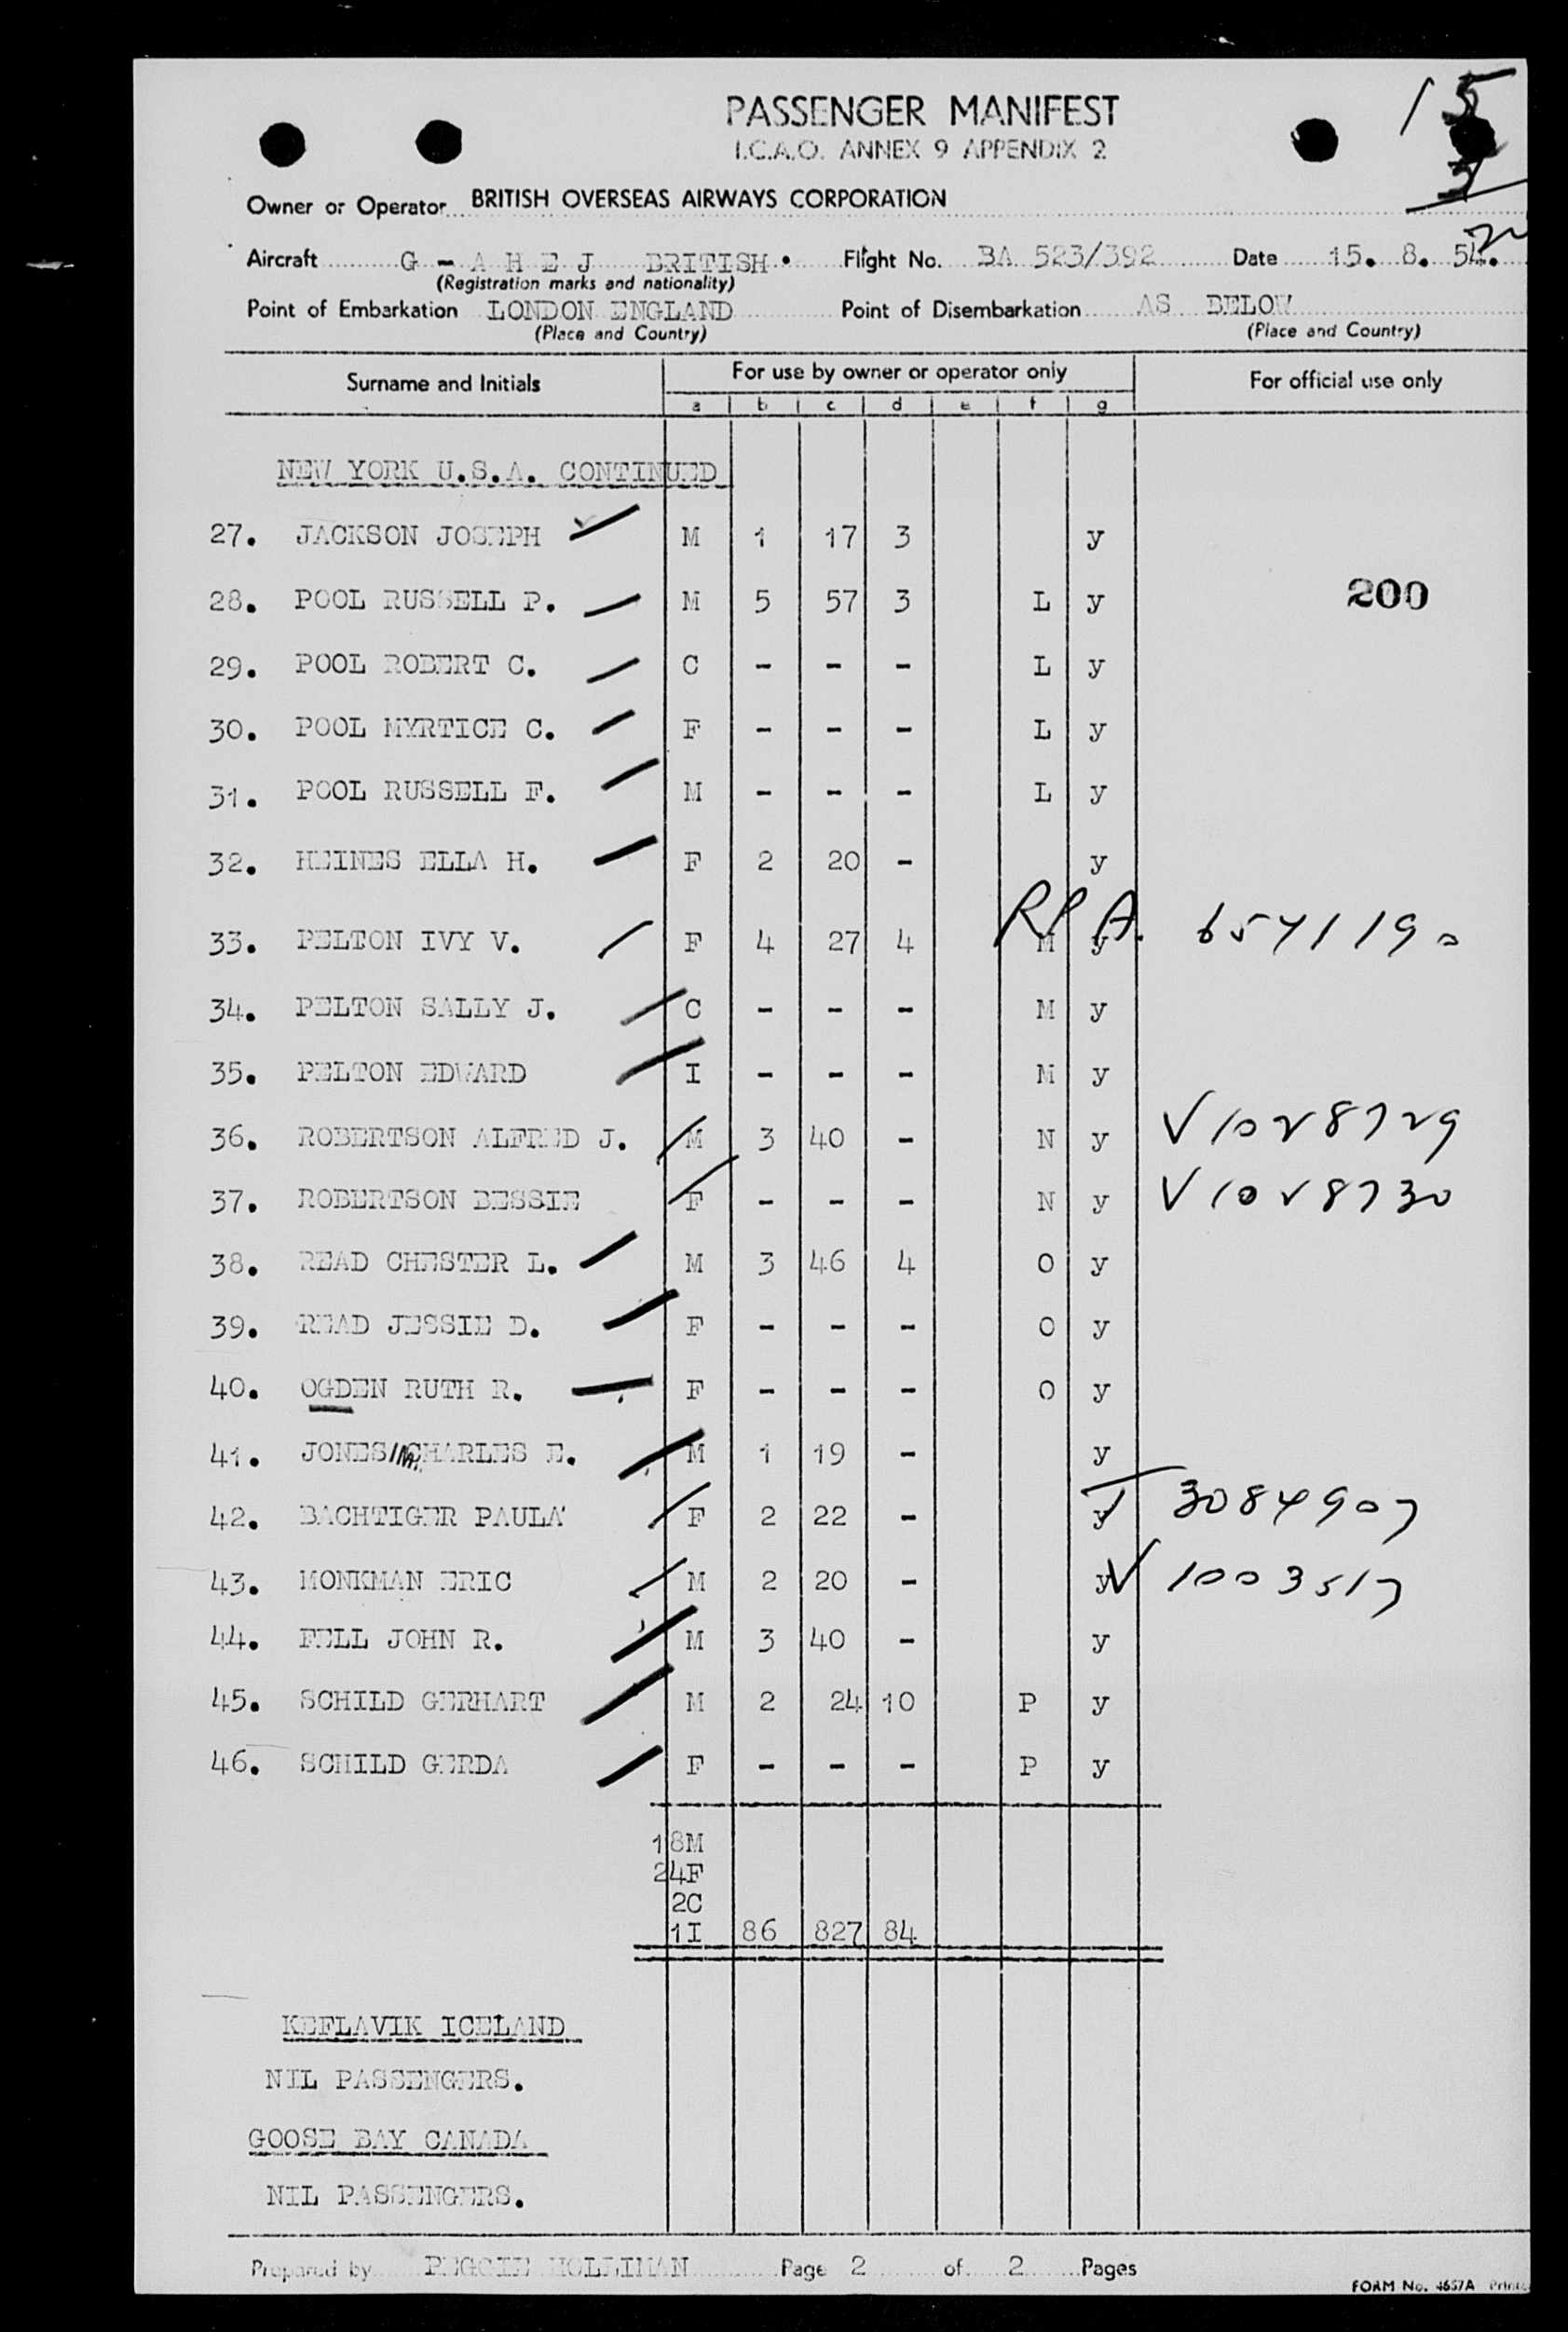 15
3
PASSENGER MANIFEST
I.C.A.O. ANNEX 9 APPENDIX 2
Owner or Operator BRITISH OVERSEAS AIRWAYS CORPORATION
Aircraft G - A H E J BRITISH. Flight No. BA 523/392 Date 15. 8. 54.
(Registration marks and nationality)
Point of Embarkation LONDON ENGLAND Point of Disembarkation AS BELOW
(Place and Country) (Place and Country)
Surname and Initials For use by owner or operator only For official use only
a b c d e f g
NEW YORK U.S.A. CONTINUED
27. JACKSON JOSEPH M 1 17 3 y
28. POOL RUSSELL P. M 5 57 3 L y 200
29. POOL ROBERT C. C - - - L y
30. POOL MYRTICE C. F - - - L y
31. POOL RUSSELL F. M - - - L y
32. HEINES ELLA H. F 2 20 - y
33. PELTON IVY V. F 4 27 4 M y RP A. 6541190
34. PELTON SALLY J. C - - - M y
35. PELTON EDWARD I - - - M y
36. ROBERTSON ALFRED J. M 3 40 - N y V1028729
37. ROBERTSON BESSIE F - - - N y V1028730
38. READ CHESTER L. M 3 46 4 O y
39. READ JESSIE D. F - - - O y
40. OGDEN RUTH R. F - - - O y
41. JONES/CHARLES E. M 1 19 - y
42. BACHTIGER PAULA F 2 22 - y I 3084907
43. MONKMAN ERIC M 2 20 - y V 1003517
44. FELL JOHN R. M 3 40 - y
45. SCHILD GERHART M 2 24 10 P y
46. SCHILD GERDA F - - - P y
18M
24F
2C
1I 86 827 84
KEFLAVIK ICELAND
NIL PASSENGERS.
GOOSE BAY CANADA
NIL PASSENGERS.
Prepared by PEGGIE HOLLIMAN Page 2 of 2 Pages
FORM No. 4657A